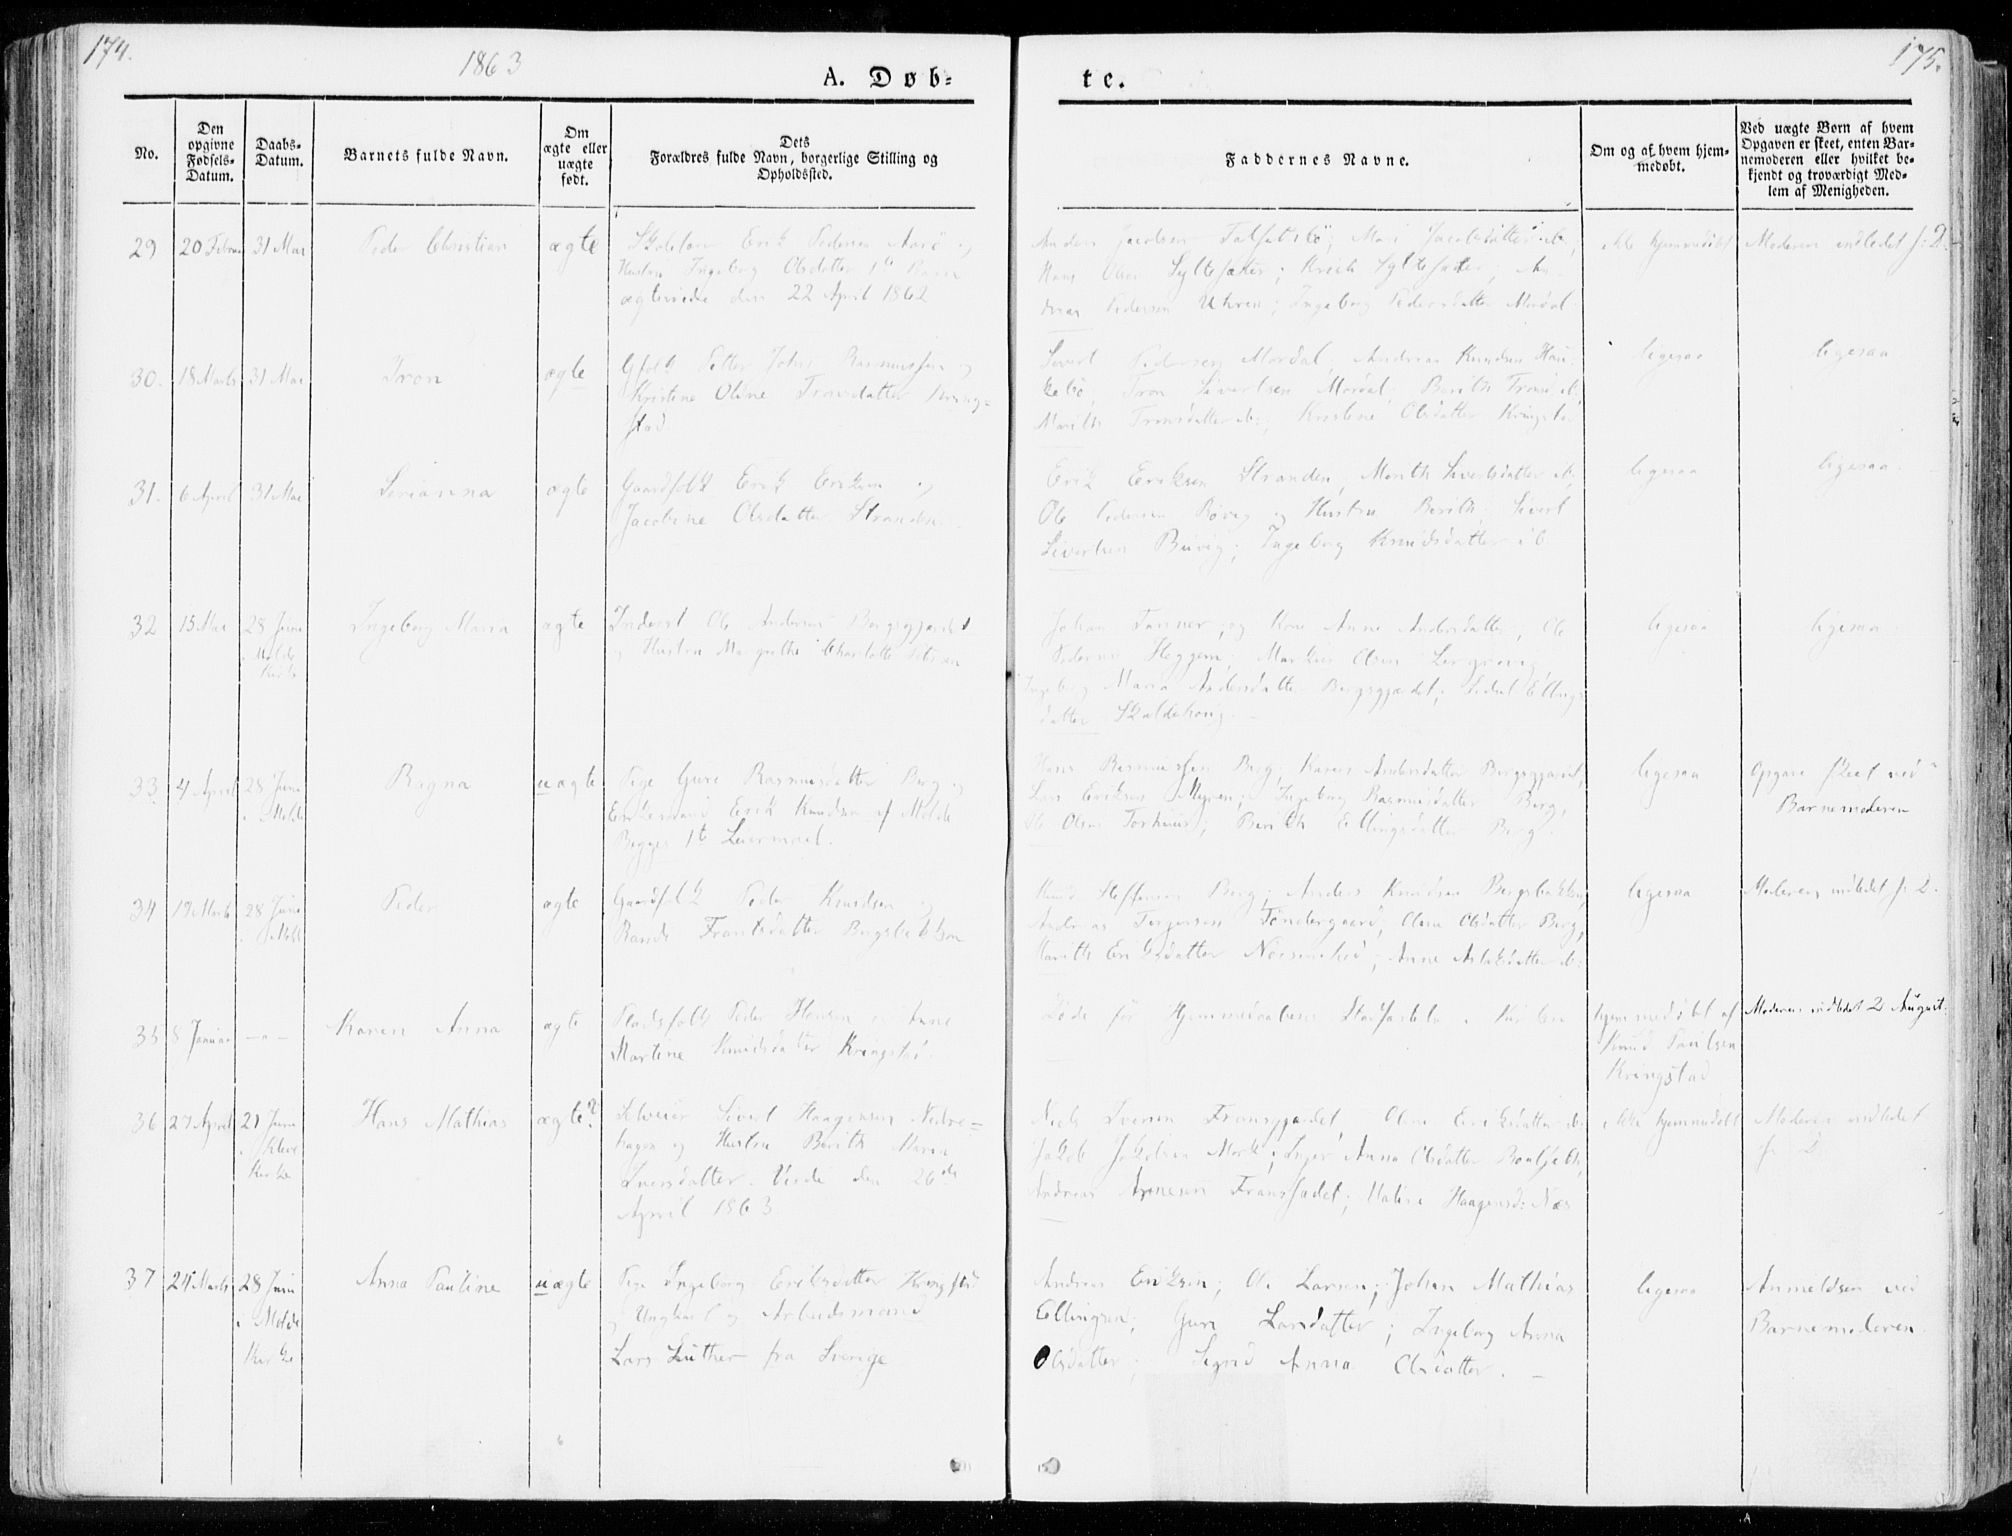 174.
1863
A. Døb-
te.
175.
No.
Den opgivne Fødsels-Datum.
Daabs-Datum.
Barnets fulde Navn.
Om ægte eller uægte født.
Dets Forældres fulde Navn, borgerlige Stilling og Opholdssted.
Faddernes Navne.
Om og af hvem hjem-medøbt.
Ved uægte Børn af hvem Opgaven er skeet, enten Bar-nemoderen eller hvilket be-kjendt og troværdigt Med-lem af Menigheden.
29
20 Februar
31 Mai
Peder Christian
ægte
Skolelærer Erik Pedersen Aarø og
Hustru Ingeborg Olsdatter 1te Barn
ægteviede den 22 April 1862
Anders Jacobsen
Mari Jacobsdatter ib.,
Hans Olsen Syltesæter;
Syltesæter; An-
dreas Pedersen
Ingeborg Pedersdatter Mordal
ikke hjemmedøbt
Moderen indledet s: D.
30.
18 Marts
31 Mai
Tron
ægte
Gfolk Petter John Rasmussen og
Kristine Oline Tronsdatter Kring-
stad.
Sivert Pedersen Mordal, Andreas Knudsen Hau-
kebø, Tron Sivertsen Mordal, Berith Tronsd: ib.
Marith Tronsdatter ib:, Kristine Olsdatter Kringstad
ligesaa
ligesaa
31.
6 April
31 Mai
Serianna
ægte
Gaardfolk Erik Eriksen og
Jacobine Olsdatter Stranden.
Erik Eriksen Stranden, Marith Sivertsdatter ib,
Ole Pedersen Bøvig og Hustru Berith, Sivert
Sivertsen Buvig; Ingeborg Knudsdatter ib
ligesaa
ligesaa.
32
15 Mai
28 Juni
i Molde
Kirke
Ingeborg Maria
ægte
Inderst Ole Andersen Bergsgjærdet
og Hustru Margrethe Charlotte
Johan Tanner, og Kone Anne Andersdatter, Ole
Pedersen Heggem; Markus Olsen
Ingeborg Maria Andersdatter Bergsgjærdet;
datter
ligesaa
ligesaa
33.
4 April
28 Juni
i Molde
Ragna
uægte
Pige Guri Rasmusdatter Berg og
Enkemand Erik Knudsen af Molde
Begges 1te Leiermaal.
Hans Rasmussen Berg; Karen Andersdatter Bergsgjærdet,
Lars Eriksen Myren; Ingeborg Rasmusdatter Berg,
Ole Olsen Torhuus; Berith Ellingsdatter Berg.
ligesaa
Opgave skeet ved
Barnemoderen
34
19 Marts
28 Juni
i Molde
Peder
ægte
Gaardfolk Peder Knudsen og
Rande Frantsdatter Bergsbakken
Knud Steffensen Berg; Anders Knudsen Bergsbakken,
Andreas Torgersen Tøndergaard; Olina Olsdatter Berg,
Marith Eriksdatter
Anne Aslaksdatter ib:
ligesaa
Moderen indledet s: D.
35
8 Januar
— " —
Karen Anna
ægte
Pladsfolk Peder Hansen og Anne
Martine Knudsdatter Kringstad
Døde før Hjemmedaabens Stadfæstelse i Kirken
hjemmedøbt af
Knud Paulsen
Kringstad
Moderen indledet 2 August.
36
27 April
21 Juni
i Kleive
Kirke
Hans Mathias
ægte?
Selveier Sivert Haagensen Nedre-
hagen og Hustru Berith Maren
Iversdatter. Viede den 26de
April 1863
Niels Iversen Fransgjærdet, Oline Eriksdatter ib
Jakob Jakobsen Mork; Inger Anna Olsdatter
Andreas Arnesen
Malene Haagensd: Næs
ikke hjemmedøbt
Moderen indledet
s: D
37
24 Marts
28 Juni
i Molde
Kirke
Anna Pauline
uægte
Pige Ingeborg Eriksdatter Kringstad
og Ungkarl og Arbeidsmand
Lars Luther fra Sverige
Andreas Eriksen; Ole Larsen; Johan Mathias
Ellingsen; Guri Larsdatter; Ingeborg Anna
Olsdatter; Sigrid Anna Olsdatter. —
ligesaa
Anmeldsen ved
Barnemoderen.